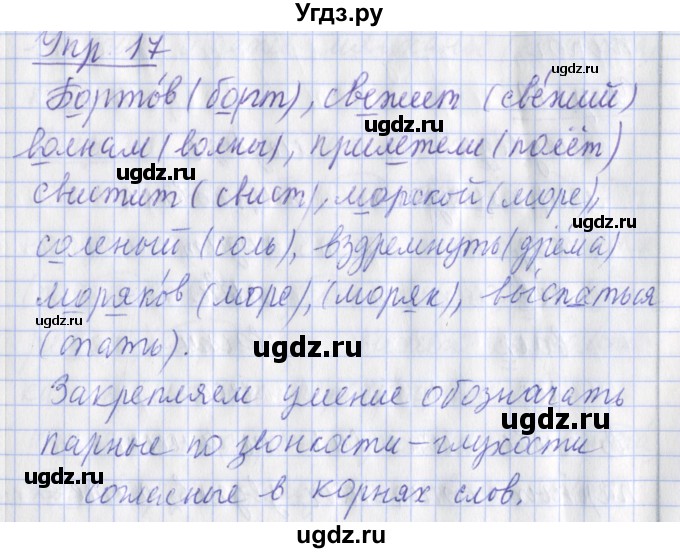 Угдз.ру
Упр 17
Бортов (борт), свежеет (свежий)
волнам (волны), прилетели (полёт)
свистит (свист), морской (море),
соленый (соль), вздремнуть (дрёма)
моряков (море), (моряк), выспаться
(спать).
Закрепляем умение обозначать
парные по звонкости-глухости
согласные в корнях слов.
ugdz.ru
ugdz.ru
ugdz.ru
ugdz.ru
ugdz.ru
ugdz.ru
ugdz.ru
ugdz.ru
ugdz.ru
ugdz.ru